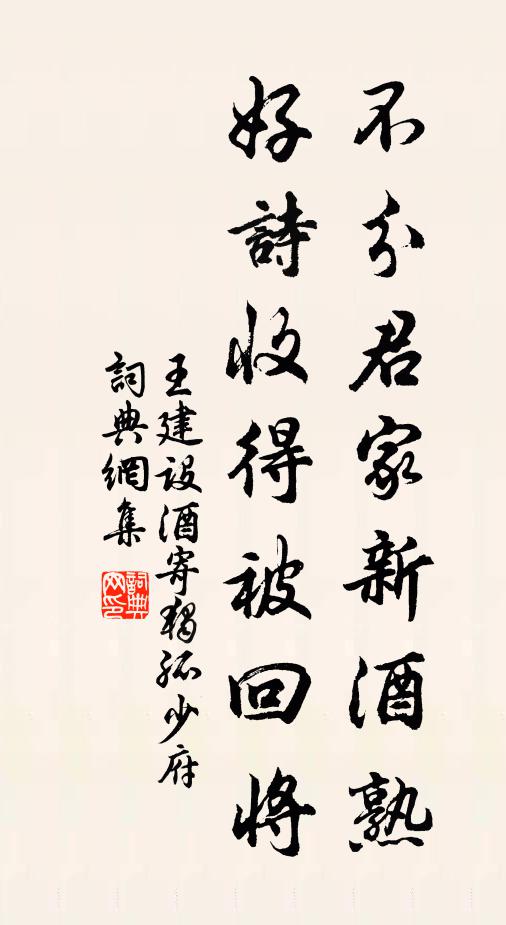 不分君家新酒熟
好詩收得被回將
王建設酒寄獨孤少府
詞典網集
詞典网印